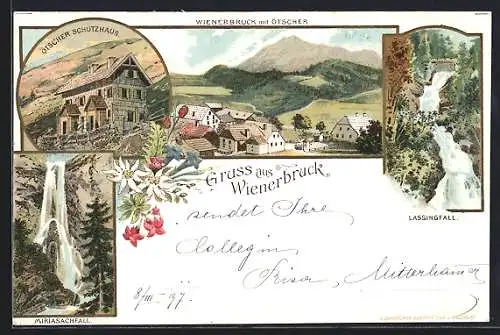 WIENERBRUCK mit ÖTSCHER
ÖTSCHER SCHUTZHAUS.
Gruss aus
Wienerbruck.
LASSINGFALL.
MIRIASACHFALL.
sendet Ihre
Collegin
8/III. 97.